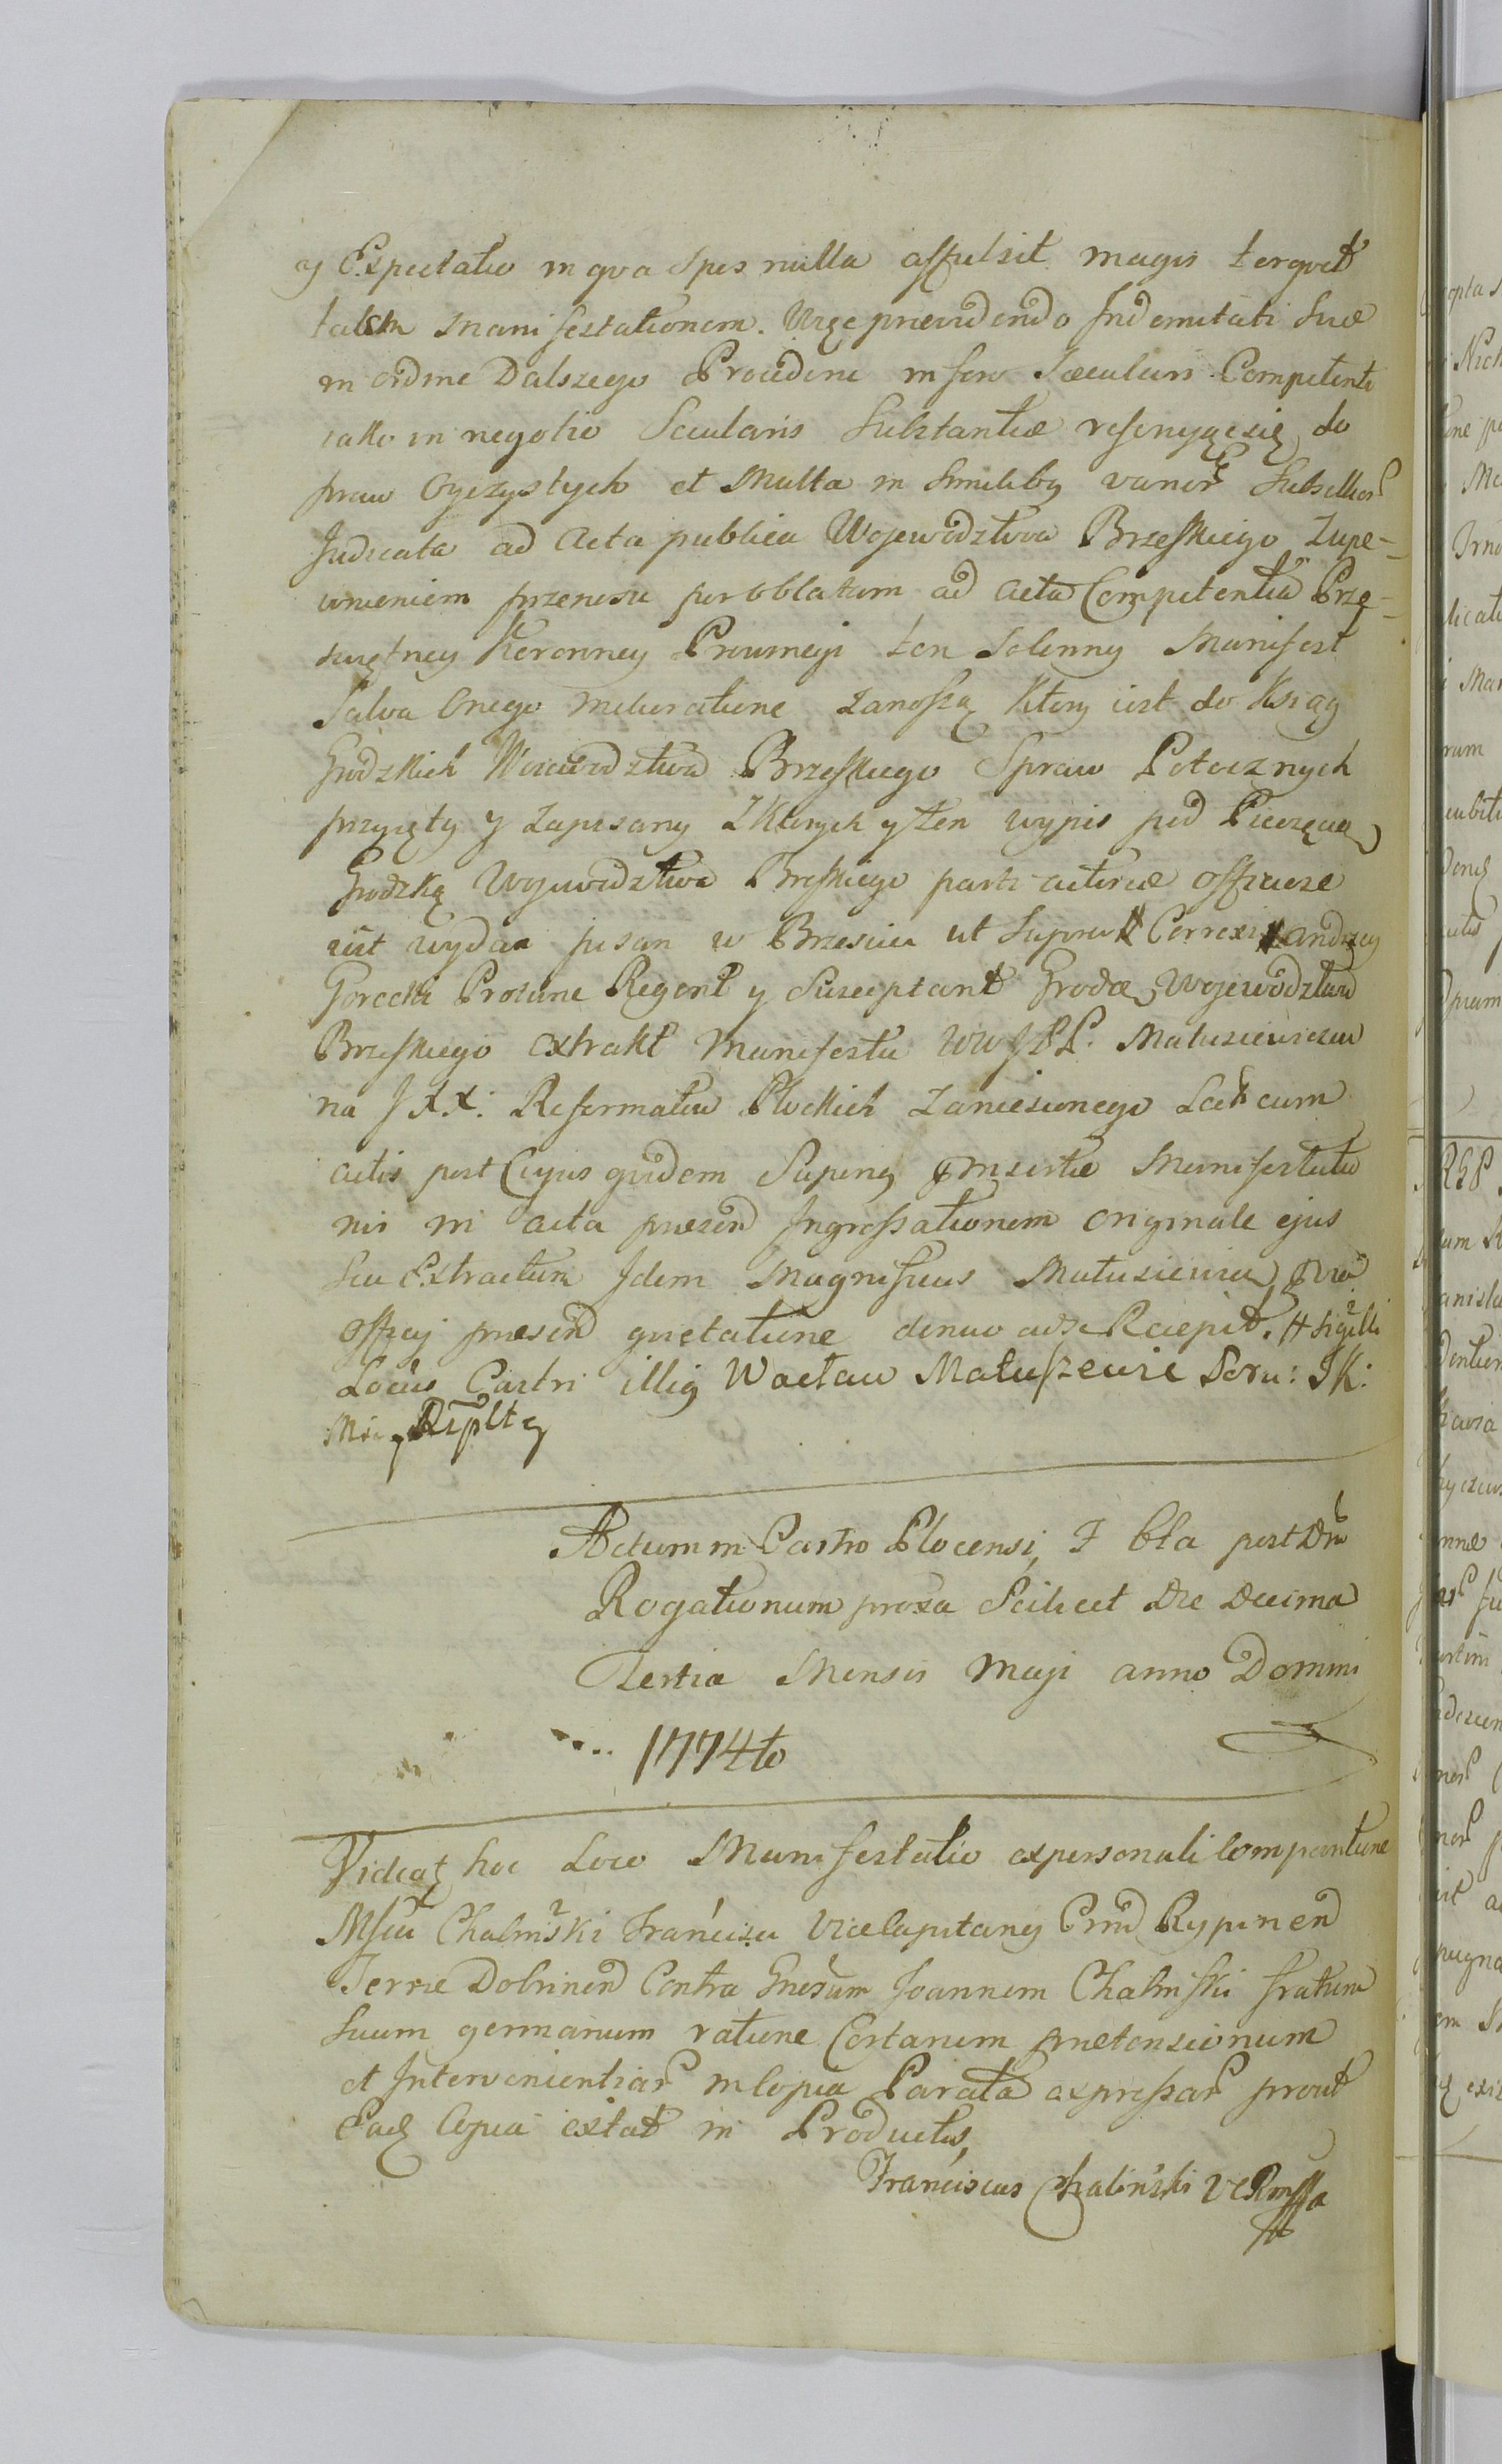 y Expectatio in qva Spes nulla affulsit magis torqvet
talem manifestationem. Więc prævidendo Indemnitati Suæ
in ordine Dalszego Procederu in foro Sæculari Competenti
iako in negotio Secularis Substantiæ referuyąc się do
praw Oyczystych et Multa in Similibq varior Subsellior
Judicata ad Acta publica Wojewodztwa Brzeskiego Zupe-
wnieniem przenosu per oblatam ad acta Competentia Prze-
swiętney Koronney Prowincyi ten Solenny Manifest
Salva Onego melioratione zanoszą Ktory iest do Ksiąg
Grodzkich Woiewodztwa Brzeskiego Spraw Potocznych
przyięty y zapisany z Ktorych y ten wypis pod Pieczęcią
Grodzką Wojewodztwa Brzeskiego parti actoreæ officiose
iest wydan pisan w Brzesciu ut Supra Correxit Andrzey
Gorecki Protunc Regent y Susceptant Grodu Wojewodztwa
Brzeskiego extrakt Manifestu WW JPP. Matusiewiczow
na J X.X. Reformatow Płockich Zaniesionego Lect cum
actis post Cujus qvidem Superiq Insertæ Manifestatio
nis in acta præsend Ingrossationem originale ejus
seu Extractum Idem Magnificus Matusiewicz
Officij præsend qvietatione denuo ad se Recepit. Sigilli
Locus Castri illiq Wacław Matuszewic Scru: JK:
Mci y Rzplty
Actum in Castro Plocensi, F bła post Dnicam
Rogationum proxa Scilicet Die Decima
Tertia Mensis Maji anno Domini
1774to
Videaz hoc Loco Manifestatio ex personali Comparitione
Mfici Chalinski Francisci Vicecapitanej Crnd Rypinend
Terræ Dobrinend Contra Gnesum Joannem Chalinski fratrem
suum germanum ratione Certarum prætensionum
et Intervenientiar in Copia Parata expressar prout
Eadz Copia extat in Productis
Franciscus Chalinski VCR mppa